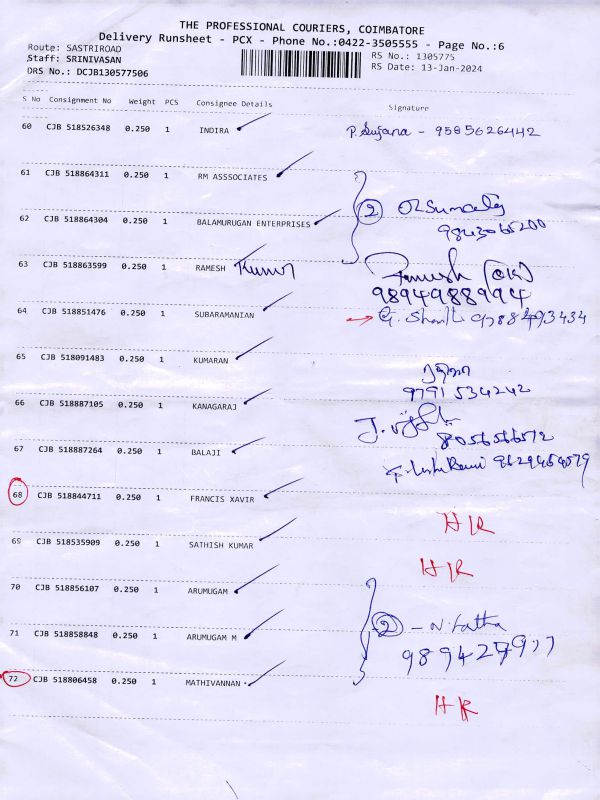 THE PROFESSIONAL COURIERS, COIMBATORE
Delivery Runsheet - PCX - Phone No.:0422-3505555 - Page No.:6
Route: SASTRIROAD
Staff: SRINIVASAN
DRS No.: DCJB130577506
RS No.: 1305775
RS Date: 13-Jan-2024
S No Consignment No Weight PCS Consignee Details Signature
60 CJB 518526348 0.250 1 INDIRA P. Sujana - 9585626442
61 CJB 518864311 0.250 1 RM ASSSOCIATES
62 CJB 518864304 0.250 1 BALAMURUGAN ENTERPRISES 2
9843066200
63 CJB 518863599 0.250 1 RAMESH Kumar Ramesh (OK)
9894988994
64 CJB 518851476 0.250 1 SUBARAMANIAN G. Shanthi 9788493434
65 CJB 518091483 0.250 1 KUMARAN
9791 534242
66 CJB 518887105 0.250 1 KANAGARAJ
67 CJB 518887264 0.250 1 BALAJI
68 CJB 518844711 0.250 1 FRANCIS XAVIR H/R
69 CJB 518535909 0.250 1 SATHISH KUMAR H/R
70 CJB 518856107 0.250 1 ARUMUGAM
71 CJB 518858848 0.250 1 ARUMUGAM M 2 - N. Latha
72 CJB 518806458 0.250 1 MATHIVANNAN H/R